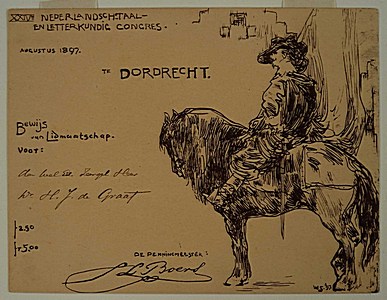 XXIVe NEDERLANDSCH TAAL-
EN LETTERKUNDIG CONGRES.
AUGUSTUS 1897.
TE DORDRECHT.
Bewijs
van Lidmaatschap.
voor:
Aan
Dr. H. J. de Graaf
2.50
f 5.00
DE PENNINGMEESTER:
Boers